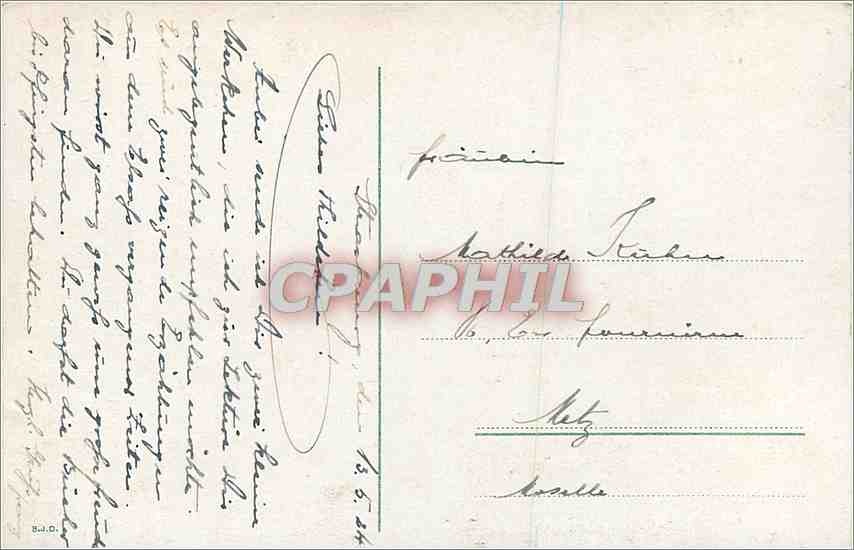 Strassburg, den 13.5.24
Liebes Hildchen!
Anbei sende ich Dir zwei kleine
Werkchen, die ich zur Lektüre Dir
angelegentlich empfehlen möchte.
Es sind zwei reizende Erzählungen
aus dem Elsass vergangener Zeiten.
Du wirst ganz gewiss eine grosse Freude
daran finden. Du darfst die Bücher
bis Pfingsten behalten. Herzl.
Fräulein
Mathilde Kuhn
En Fournirue
Metz
Moselle
B.J.D.
CPAPHIL